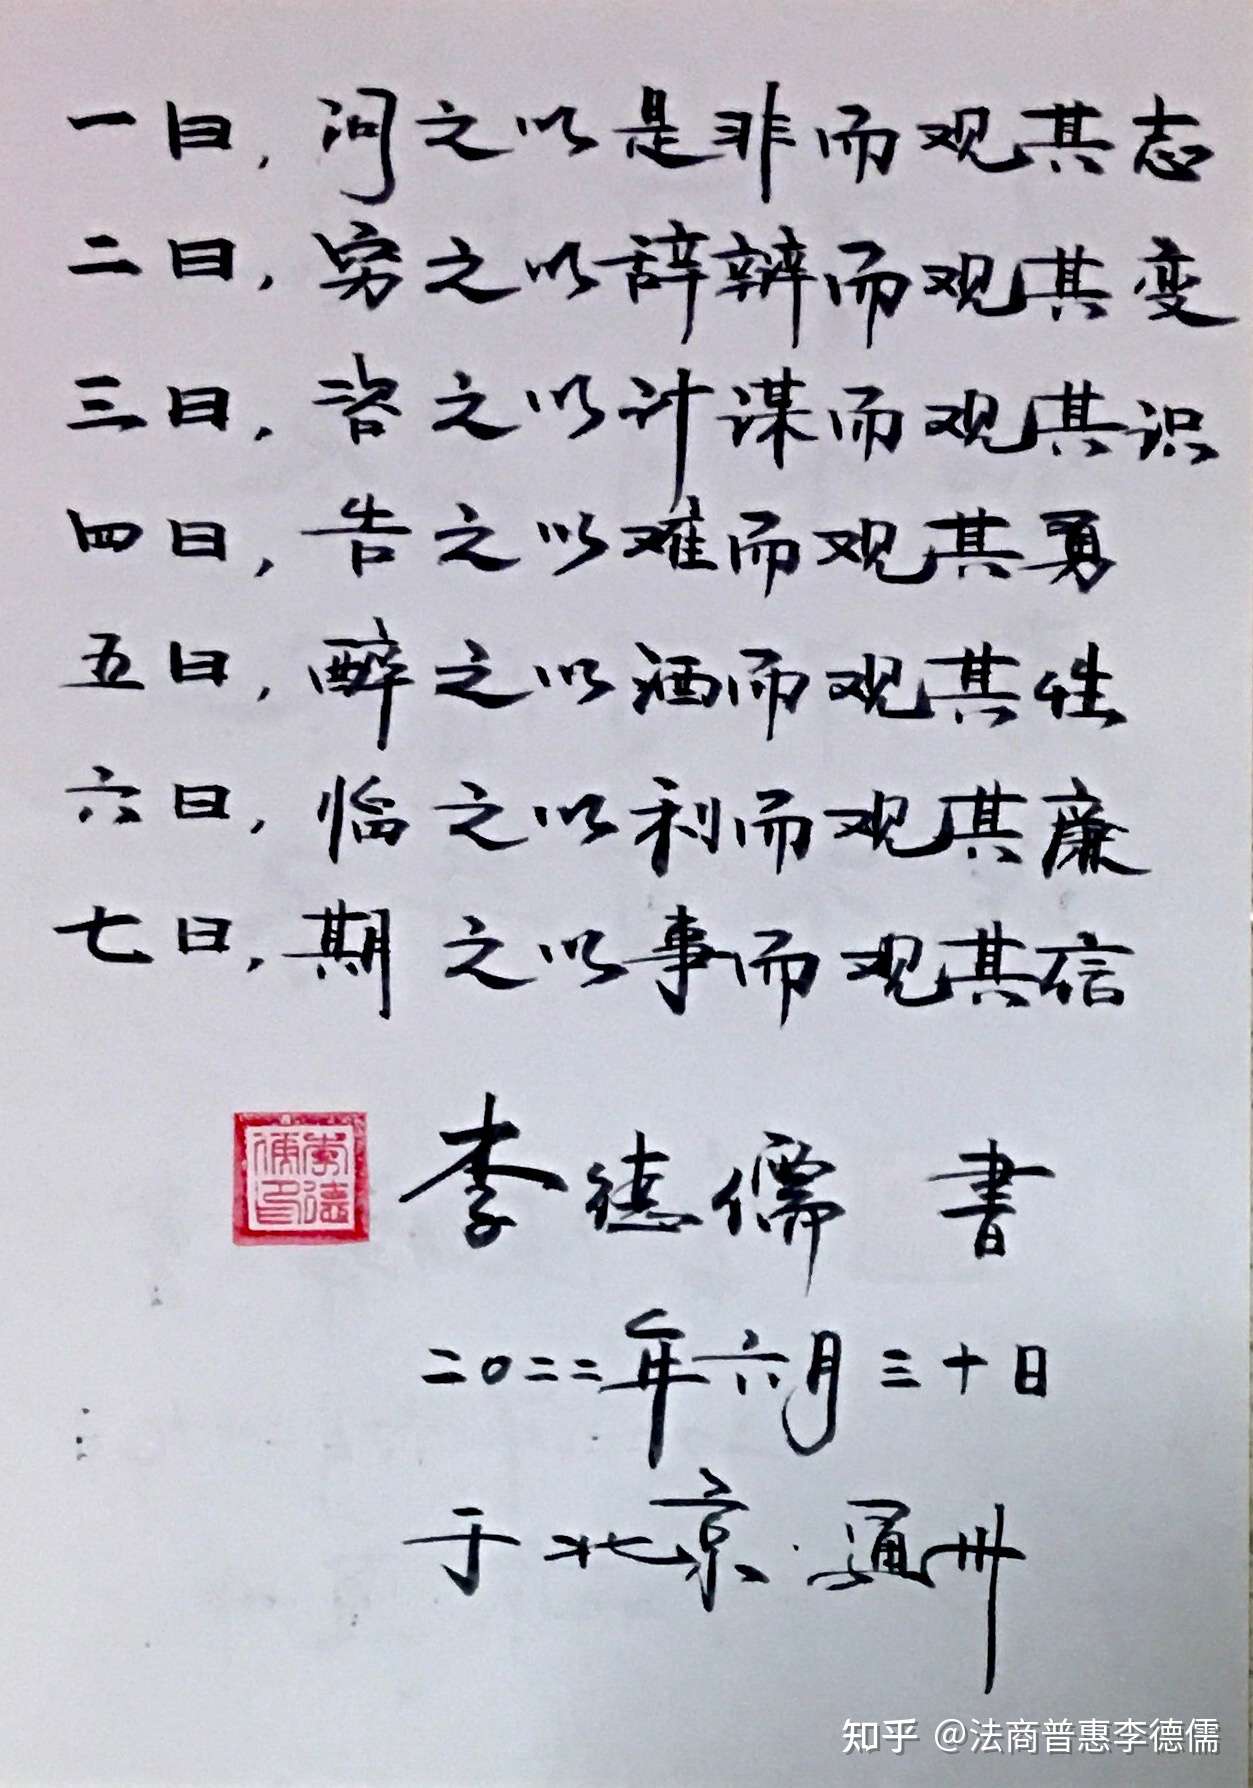 一曰，问之以是非而观其志
二曰，穷之以辞辨而观其变
三曰，咨之以计谋而观其识
四曰，告之以难而观其勇
五曰，醉之以酒而观其性
六曰，临之以利而观其廉
七曰，期之以事而观其信
李德儒印
李德儒 書
二〇二二年六月三十日
于北京·通州
知乎 @法商普惠李德儒